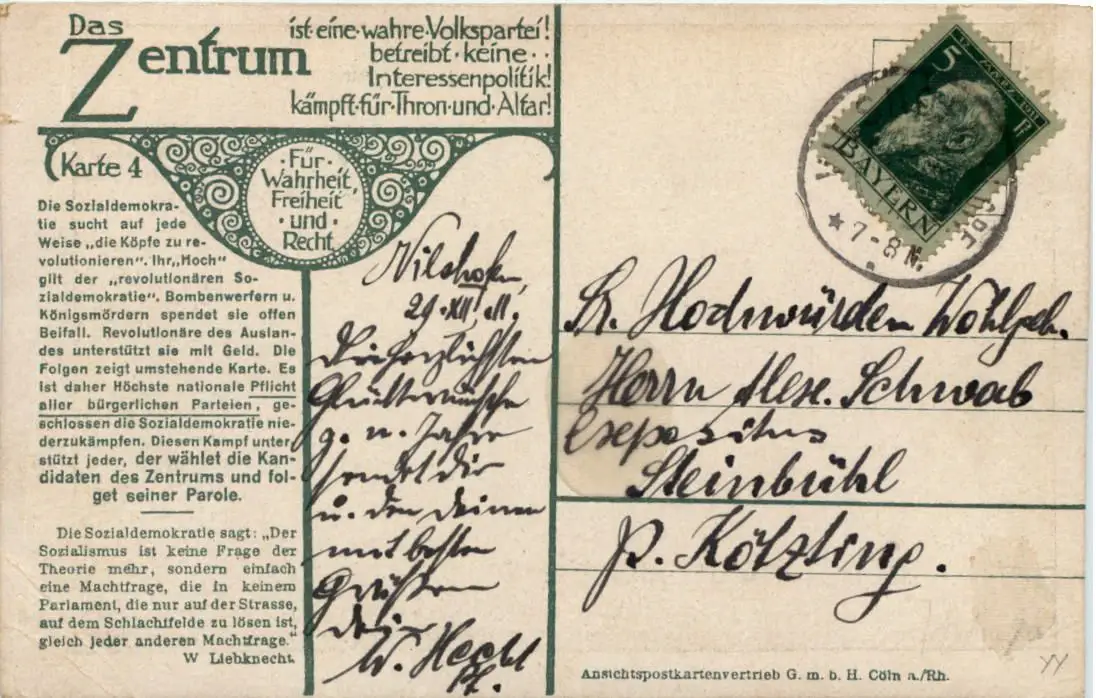 Das
Zentrum
ist·eine·wahre·Volkspartei!
betreibt·keine··
Interessenpolitik!
kämpft·für·Thron·und·Altar!
Karte 4
·Für·
Wahrheit,
Freiheit
·und·
Recht
Die Sozialdemokra-
tie sucht auf jede
Weise „die Köpfe zu re-
volutionieren". Ihr „Hoch"
gilt der „revolutionären So-
zialdemokratie". Bombenwerfern u.
Königsmördern spendet sie offen
Beifall. Revolutionäre des Auslan-
des unterstützt sie mit Geld. Die
Folgen zeigt umstehende Karte. Es
ist daher Höchste nationale Pflicht
aller bürgerlichen Parteien, ge-
schlossen die Sozialdemokratie nie-
derzukämpfen. Diesen Kampf unter-
stützt jeder, der wählet die Kan-
didaten des Zentrums und fol-
get seiner Parole.
Die Sozialdemokratie sagt: „Der
Sozialismus ist keine Frage der
Theorie mehr, sondern einfach
eine Machtfrage, die in keinem
Parlament, die nur auf der Strasse,
auf dem Schlachtfelde zu lösen ist,
gleich jeder anderen Machtfrage."
W Liebknecht.
Vilshofen,
29.XII.11.
Die herzlichsten
Glückwünsche
z. n. Jahre
sendet dir
u. den deinen
mit besten
Grüßen
dein
W. Hechl
Sr. Hochwürden Wohlgeb.
Herrn Alex. Schwab
Expositus
Steinbühl
p. Kötzting.
5
BAYERN
7-8 N.
Ansichtspostkartenvertrieb G. m. b. H. Cöln a./Rh.